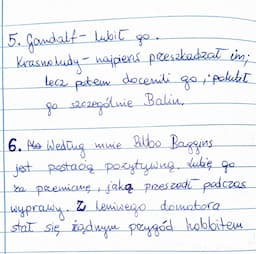 5. Gandalf – lubił go.
Krasnoludy – najpierw przeszkadzał im;
lecz potem docenili go, i polubił
go szczególnie Balin.
6. Według mnie Bilbo Baggins
jest postacią pozytywną. Lubię go
za przemianę, jaką przeszedł podczas
wyprawy. Z leniwego domatora
stał się żądnym przygód hobbitem